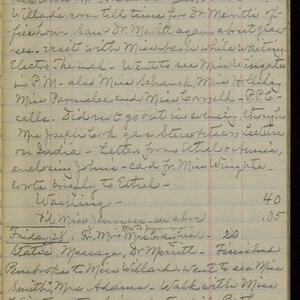 Willard's room till time for Dr. Merritt's of-
fice hour. Saw Dr. Merritt again about glas-
ses - visit with Miss while waiting
Electro Thermal - Went to see Miss Wingate
in P.M. - also Miss Schenck, Miss Holliday
Miss Parmelee and Miss Connell - P.P.C.
calls. Did not go out in evening, though
Mrs Joseph Cook gave Stereopticon Lecture
on India - Letter from Ethel & Annie,
enclosing John's - card fr. Miss Wingate.
Wrote briefly to Ethel -
Washing - 40
Pd Miss see above .05
Friday 28. Fr. Mrs. 20
Static, Massage, Dr. Merritt - Finished
Penobroke to Miss Willard. Went to see Miss
Smith, Mrs Adams - Walk with Miss